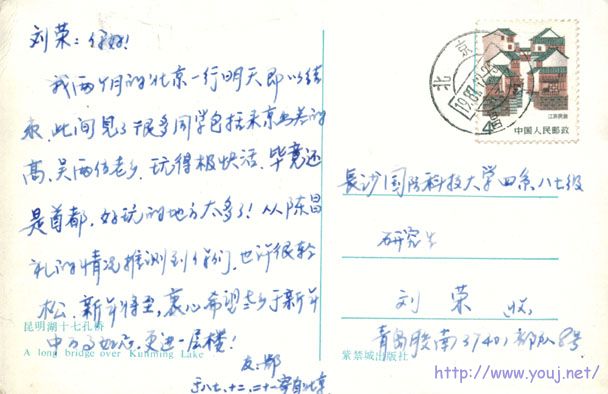 刘荣：你好！
我两个月的北京一行明天即以结
束，此间见了很多同学包括来京出差的
高、吴两位老乡，玩得极快活，毕竟还
是首都，好玩的地方太多了！从陈昌
礼的情况推测到你们，也许很轻
松，新年将至，衷心希望老乡于新年
中万事如意，更进一层楼！
友：郑
于八七、十二、二十一寄自北京
昆明湖十七孔桥
A long bridge over Kunming Lake
北京
1987.12
江苏民居
中国人民邮政
长沙国防科技大学四系八七级
研究生
刘荣 收
青岛胶南37401部队8号
紫禁城出版社
http://www.youj.net/